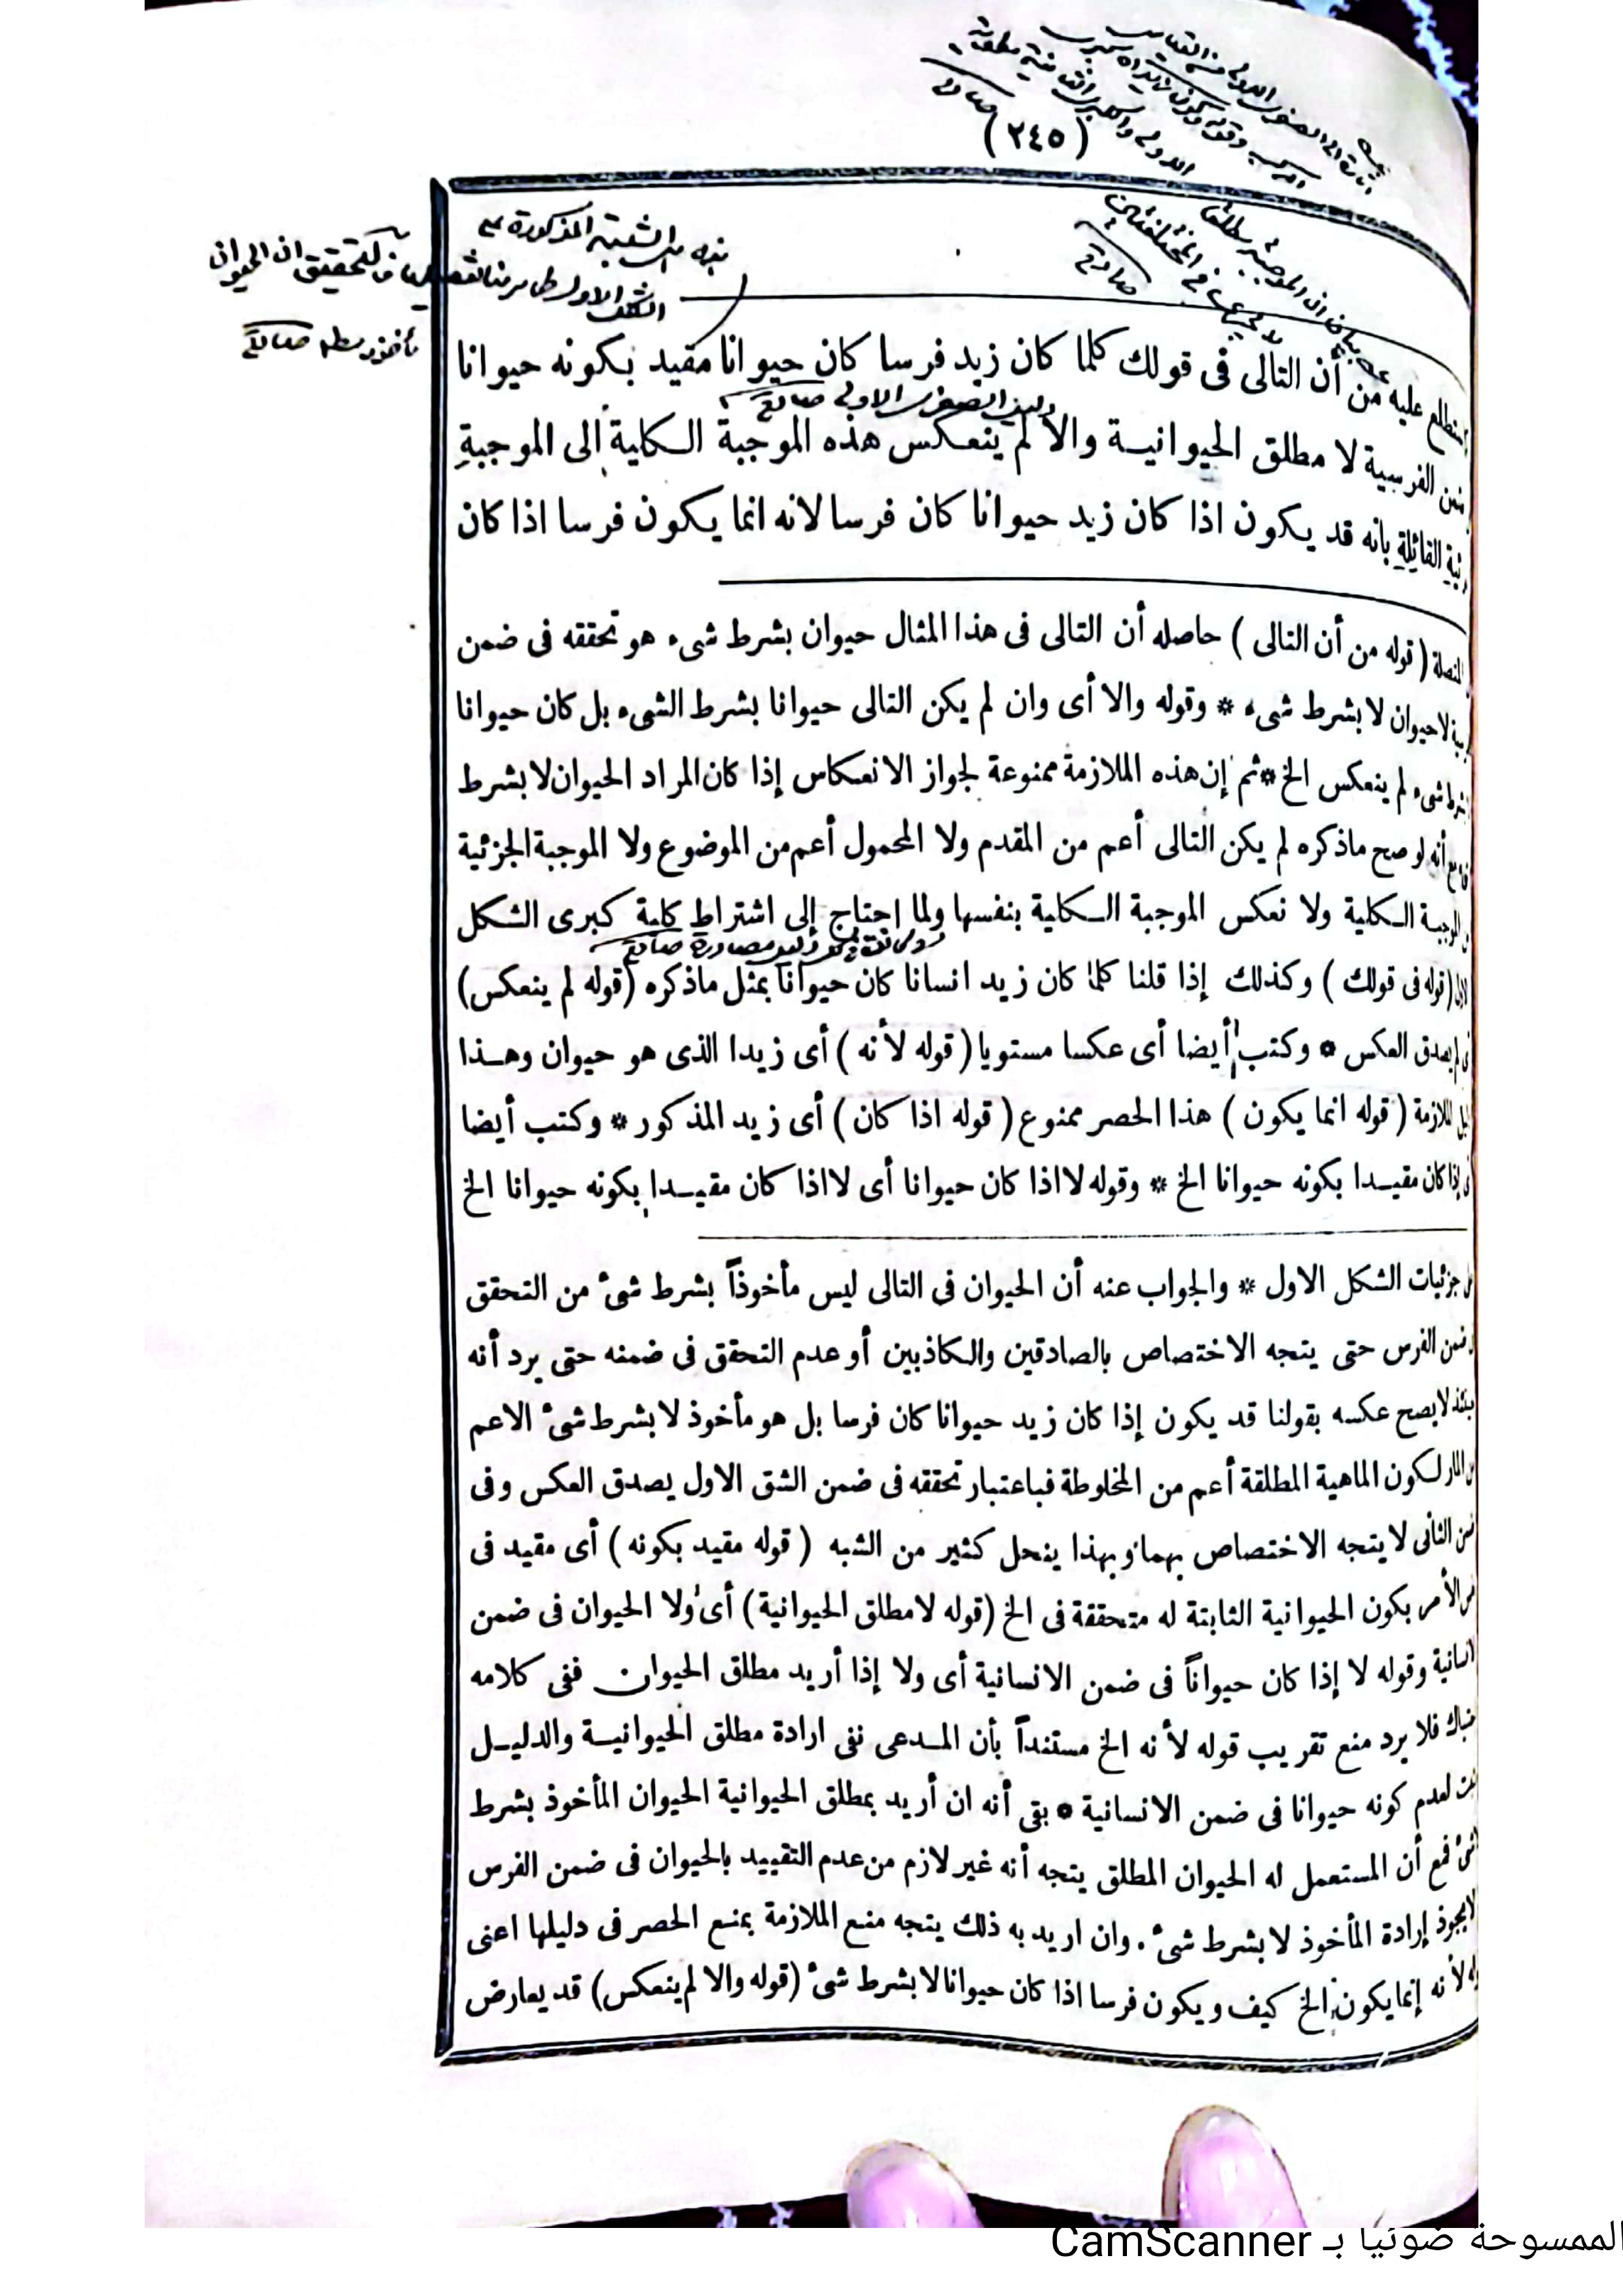 (٢٤٥)
عليه من أن التالى فى قولك كلما كان زيد فرسا كان حيوانا مقيد بكونه حيوانا
الفرسية لا مطلق الحيوانيـة والا لم ينعكس هذه الموجبة الكلية إلى الموجبة
القائلة بانه قد يكون اذا كان زيد حيوانا كان فرسا لانه انما يكون فرسا اذا كان
(قوله من أن التالى) حاصله أن التالى فى هذا المثال حيوان بشرط شىء هو تحققه فى ضمن
لا حيوان لا بشرط شىء * وقوله والا أى وان لم يكن التالى حيوانا بشرط الشىء بل كان حيوانا
شىء لم ينعكس الخ * ثم إن هذه الملازمة ممنوعة لجواز الانعكاس إذا كان المراد الحيوان لا بشرط
أنه لو صح ماذكره لم يكن التالى أعم من المقدم ولا المحمول أعم من الموضوع ولا الموجبة الجزئية
الموجبة الكلية ولا نعكس الموجبة الكلية بنفسها ولما احتاج إلى اشتراط كلية كبرى الشكل
(قوله فى قولك) وكذلك إذا قلنا كلما كان زيد انسانا كان حيوانا بمثل ماذكره (قوله لم ينعكس)
يصدق العكس * وكتب أيضا أى عكسا مستويا (قوله لأنه) أى زيدا الذى هو حيوان وهـذا
الملازمة (قوله انما يكون) هذا الحصر ممنوع (قوله اذا كان) أى زيد المذكور * وكتب أيضا
إذا كان مقيـدا بكونه حيوانا الخ * وقوله لا اذا كان حيوانا أى لا اذا كان مقيـدا بكونه حيوانا الخ
جزئيات الشكل الاول * والجواب عنه أن الحيوان فى التالى ليس مأخوذاً بشرط شئ من التحقق
ضمن الفرس حتى يتجه الاختصاص بالصادقين والكاذبين أو عدم التحقق فى ضمنه حتى يرد أنه
لا يصح عكسه بقولنا قد يكون إذا كان زيد حيوانا كان فرسا بل هو مأخوذ لا بشرط شئ الاعم
لكون الماهية المطلقة أعم من المخلوطة فباعتبار تحققه فى ضمن الشق الاول يصدق العكس وفى
الثانى لا يتجه الاختصاص بهما وبهذا ينحل كثير من الشبه (قوله مقيد بكونه) أى مقيد فى
الأمر بكون الحيوانية الثابتة له متحققة فى الخ (قوله لا مطلق الحيوانية) أى ولا الحيوان فى ضمن
وقوله لا إذا كان حيواناً فى ضمن الانسانية أى ولا إذا أريد مطلق الحيوان ففى كلامه
فلا يرد منع تقريب قوله لأنه الخ مستنداً بأن المـدعى نفى ارادة مطلق الحيوانيـة والدليـل
لعدم كونه حيوانا فى ضمن الانسانية * بقى أنه ان أريد بمطلق الحيوانية الحيوان المأخوذ بشرط
فمع أن المستعمل له الحيوان المطلق يتجه أنه غير لازم من عدم التقييد بالحيوان فى ضمن الفرس
إرادة المأخوذ لا بشرط شئ . وان اريد به ذلك يتجه منع الملازمة بمنع الحصر فى دليلها اعنى
لأنه إنما يكون الخ كيف ويكون فرسا اذا كان حيوانا لا بشرط شئ (قوله والا لم ينعكس) قد يعارض
الممسوحة ضوئيا بـ CamScanner